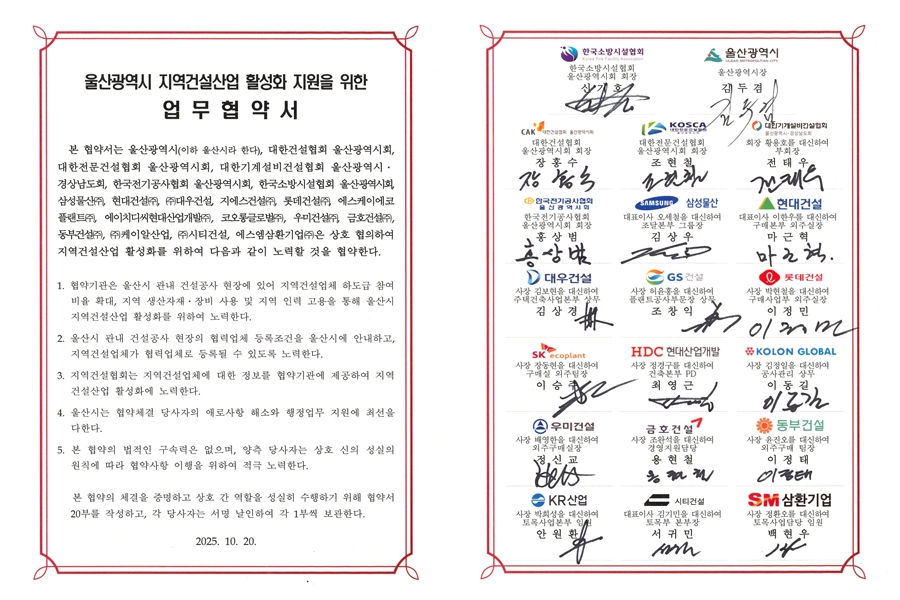 울산광역시 지역건설산업 활성화 지원을 위한
업 무 협 약 서
본 협약서는 울산광역시(이하 울산시라 한다), 대한건설협회 울산광역시회,
대한전문건설협회 울산광역시회, 대한기계설비건설협회 울산광역시·
경상남도회, 한국전기공사협회 울산광역시회, 한국소방시설협회 울산광역시회,
삼성물산㈜, 현대건설㈜, ㈜대우건설, 지에스건설㈜, 롯데건설㈜, 에스케이에코
플랜트㈜, 에이치디씨현대산업개발㈜, 코오롱글로벌㈜, 우미건설㈜, 금호건설㈜,
동부건설㈜, ㈜케이알산업, ㈜시티건설, 에스엠삼환기업㈜은 상호 협의하여
지역건설산업 활성화를 위하여 다음과 같이 노력할 것을 협약한다.
1. 협약기관은 울산시 관내 건설공사 현장에 있어 지역건설업체 하도급 참여
비율 확대, 지역 생산자재·장비 사용 및 지역 인력 고용을 통해 울산시
지역건설산업 활성화를 위하여 노력한다.
2. 울산시 관내 건설공사 현장의 협력업체 등록조건을 울산시에 안내하고,
지역건설업체가 협력업체로 등록될 수 있도록 노력한다.
3. 지역건설협회는 지역건설업체에 대한 정보를 협약기관에 제공하여 지역
건설산업 활성화에 노력한다.
4. 울산시는 협약체결 당사자의 애로사항 해소와 행정업무 지원에 최선을
다한다.
5. 본 협약의 법적인 구속력은 없으며, 양측 당사자는 상호 신의 성실의
원칙에 따라 협약사항 이행을 위하여 적극 노력한다.
본 협약의 체결을 증명하고 상호 간 역할을 성실히 수행하기 위해 협약서
20부를 작성하고, 각 당사자는 서명 날인하여 각 1부씩 보관한다.
2025. 10. 20.
한국소방시설협회 울산광역시
Korea Fire Facility Association ULSAN METROPOLITAN CITY
한국소방시설협회
울산광역시회 회장 울산광역시장
김 두 겸
김두겸
CAK 대한건설협회 울산광역시회 KOSCA 대한기계설비건설협회
울산광역시·경상남도회
대한건설협회 대한전문건설협회 회장 황용호를 대신하여
울산광역시회 회장 울산광역시회 회장 부회장
장 홍 수 조 현 철 전 태 우
장홍수 조현철 전태우
한국전기공사협회 SAMSUNG 삼성물산 현대건설
울산광역시회
한국전기공사협회 대표이사 오세철을 대신하여 대표이사 이한우를 대신하여
울산광역시회 회장 조달본부 그룹장 구매본부 외주실장
홍 상 범 김 상 우 마 근 혁
홍상범 마근혁.
대우건설 GS건설 롯데건설
사장 김보현을 대신하여 사장 허윤홍을 대신하여 사장 박현철을 대신하여
주택건축사업본부 상무 플랜트공사부문장 상무 구매사업부 외주실장
김 상 경 조 창 익 이 정 민
이정민
SK ecoplant HDC 현대산업개발 KOLON GLOBAL
사장 장동현을 대신하여 사장 정경구를 대신하여 사장 김정일을 대신하여
구매실 외주팀장 건축본부 PD 공사관리 상무
이 승 주 최 영 근 이 동 길
이동길
우미건설 금호건설 동부건설
사장 배영한을 대신하여 사장 조완석을 대신하여 사장 윤진오를 대신하여
외주구매실장 경영지원담당 외주구매 팀장
정 신 교 용 현 철 이 정 태
용현철 이정태
KR산업 시티건설 SM 삼환기업
사장 박희성을 대신하여 대표이사 김기민을 대신하여 사장 정환오를 대신하여
토목사업본부 임원 토목부 본부장 토목사업담당 임원
안 원 환 서 귀 민 백 현 우